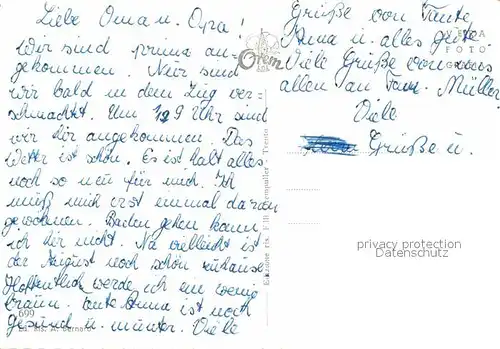 Liebe Oma u. Opa!
Wir sind prima an-
gekommen. Nur sind
wir bald in dem Zug ver-
schmachtet. Um 1/2 9 Uhr sind
wir hir angekommen. Das
Wetter ist schön. Es ist halt alles
noch so neu für mich. Ich
muß mich erst einmal daran
gewöhnen. Baden gehen kann
ich hir nicht. Na vielleicht ist
der August noch schön zuhause
Hoffentlich werde ich ein wenig
braun. Tante Anna ist noch
gesund u. munter. Viele
Grüße von Tante
Anna u. alles gute
Viele Grüße von uns
allen an Fam. Müller
Viele
Grüße u.
Orem
VERA
FOTO
699
privacy protection
Datenschutz